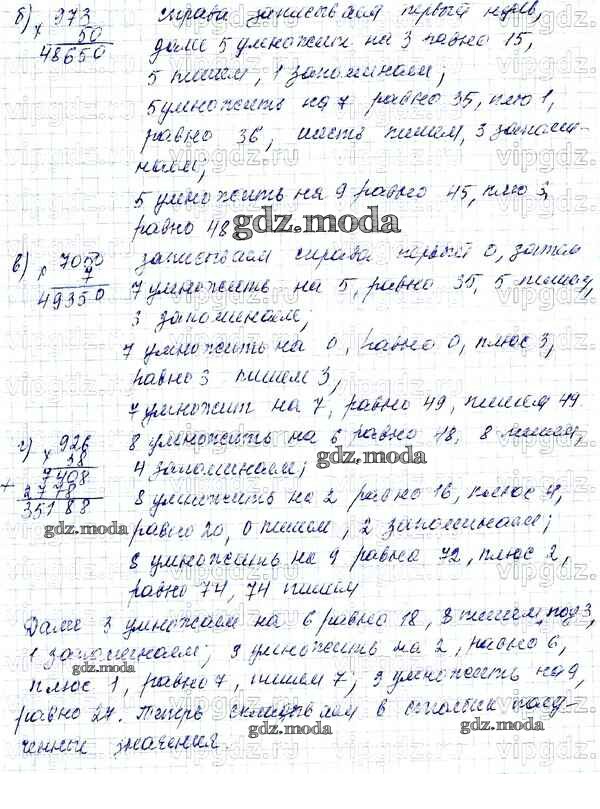 б) х 973 справа записываем первый нуль,
50 дале 5 умножить на 3 равно 15,
48650 5 пишем, 1 запоминаем;
5 умножить на 7 равно 35, плю 1,
равно 36, шесть пишем, 3 запоми-
наем;
5 умножить на 9 равно 45, плю 3,
равно 48
gdz.moda
в) х 7050 записываем справа первый 0, затем
7 7 умножить на 5, равно 35, 5 пишем,
49350 3 запоминаем;
7 умножить на 0, равно 0, плюс 3,
равно 3 пишем 3,
7 умножит на 7, равно 49, пишем 49.
г) х 926 8 умножить на 6 равно 48, 8 пишем,
38 4 запоминаем;
gdz.moda
+ 7408 8 умножить на 2 равно 16, плюс 4,
2778
35188 равно 20, 0 пишем, 2 запоминаем;
gdz.moda
8 умножить на 9 равно 72, плюс 2,
равно 74, 74 пишем
Дале 3 умножаем на 6 равно 18, 8 пишем под
1 запоминаем; 3 умножить на 2, равно 6,
gdz.moda
плюс 1, равно 7, пишем 7; 3 умножить на 9,
равно 27. Теперь складываем в столбик полу-
ченные значения
gdz.moda
gdz.moda
vipgdz.ru